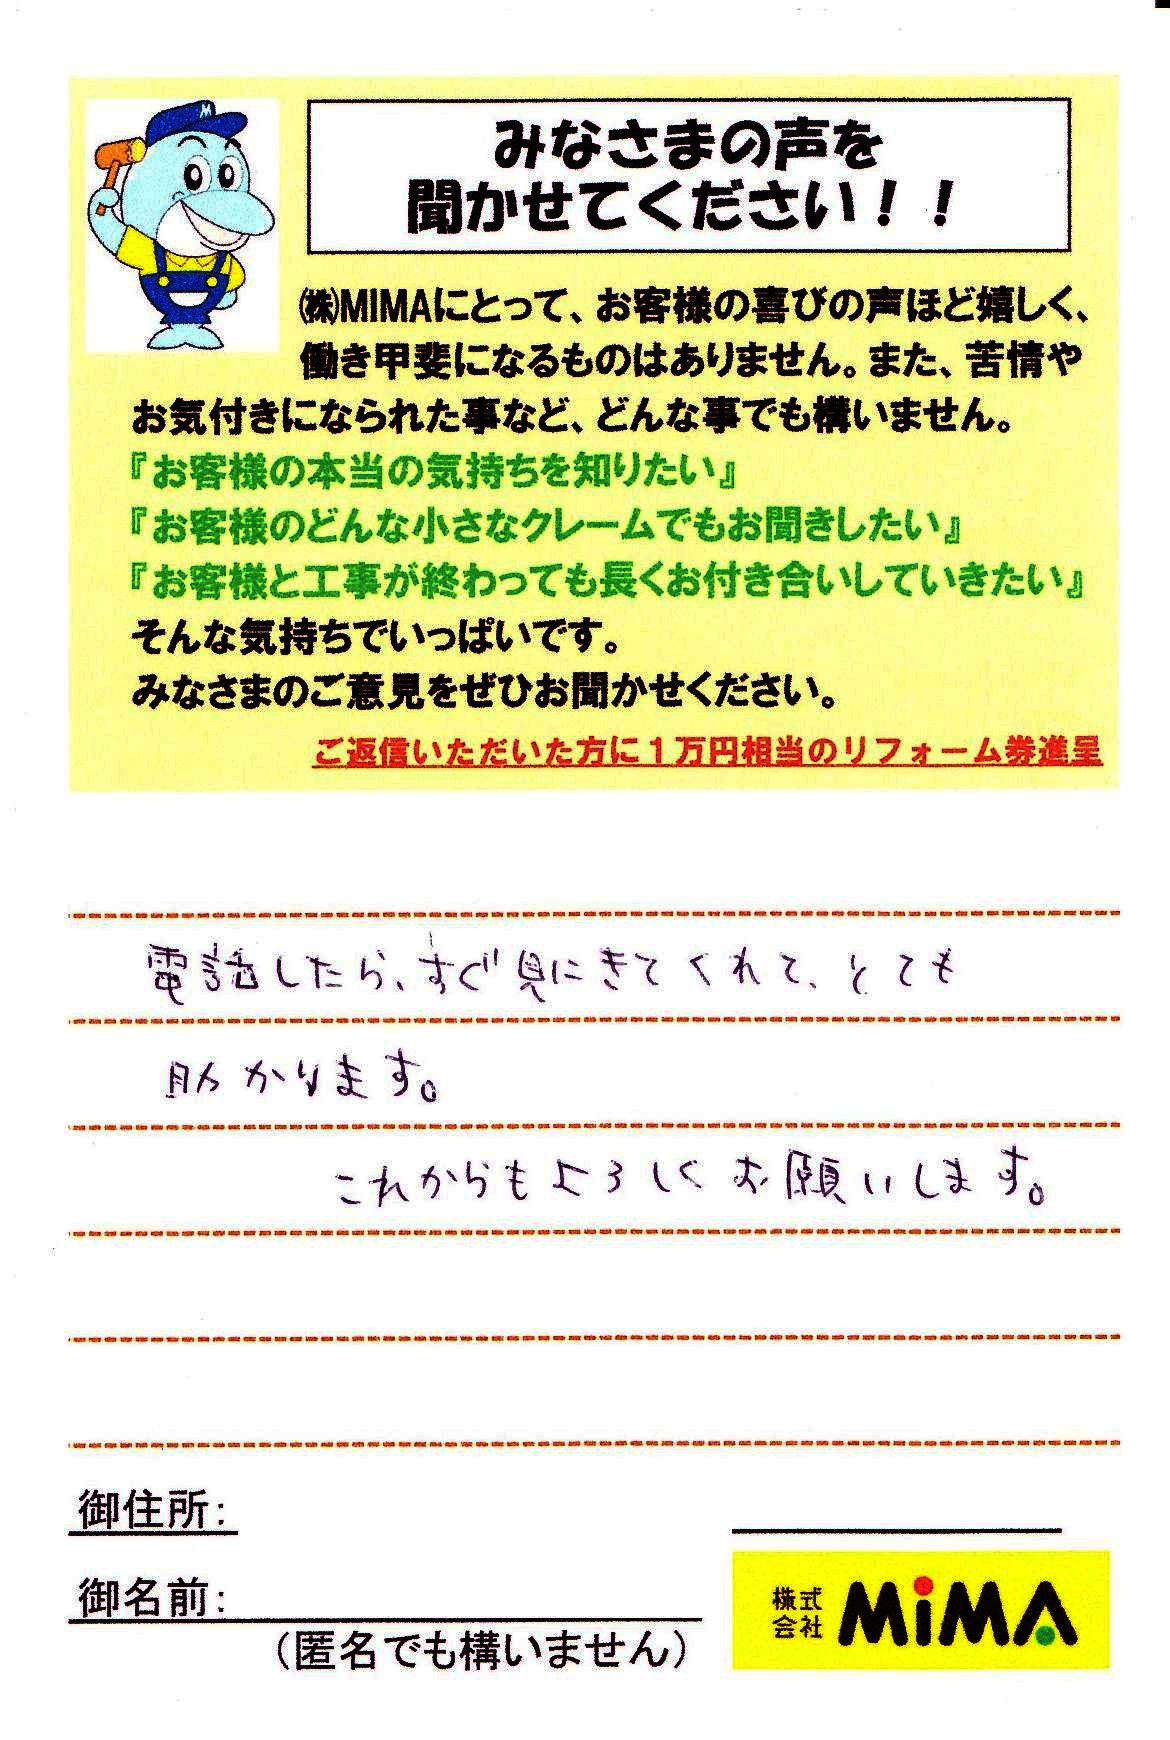 みなさまの声を
聞かせてください！！
㈱MIMAにとって、お客様の喜びの声ほど嬉しく、
働き甲斐になるものはありません。また、苦情や
お気付きになられた事など、どんな事でも構いません。
『お客様の本当の気持ちを知りたい』
『お客様のどんな小さなクレームでもお聞きしたい』
『お客様と工事が終わっても長くお付き合いしていきたい』
そんな気持ちでいっぱいです。
みなさまのご意見をぜひお聞かせください。
ご返信いただいた方に１万円相当のリフォーム券進呈
電話したら、すぐ見にきてくれて、とても
助かります。
これからもよろしくお願いします。
御住所：
御名前：
（匿名でも構いません）
株式会社 MiMA
M